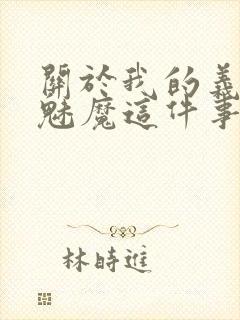 關於我的義
魅魔這件事
林時進